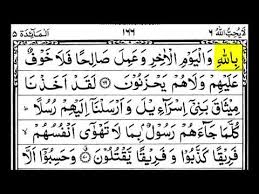 لَا يُحِبُّ اللهُ ٦ ١٦٦ اَلْمَآئِدَة ٥
بِاللّٰهِ وَالْيَوْمِ الْاٰخِرِ وَعَمِلَ صَالِحًا فَلَا خَوْفٌ
عَلَيْهِمْ وَلَا هُمْ يَحْزَنُوْنَ ٦٩ لَقَدْ اَخَذْنَا
مِيْثَاقَ بَنِيْٓ اِسْرَآءِيْلَ وَاَرْسَلْنَآ اِلَيْهِمْ رُسُلًا
كُلَّمَا جَآءَهُمْ رَسُوْلٌۢ بِمَا لَا تَهْوٰٓى اَنْفُسُهُمْ
فَرِيْقًا كَذَّبُوْا وَفَرِيْقًا يَّقْتُلُوْنَ ٧٠ وَحَسِبُوْٓا اَلَّا